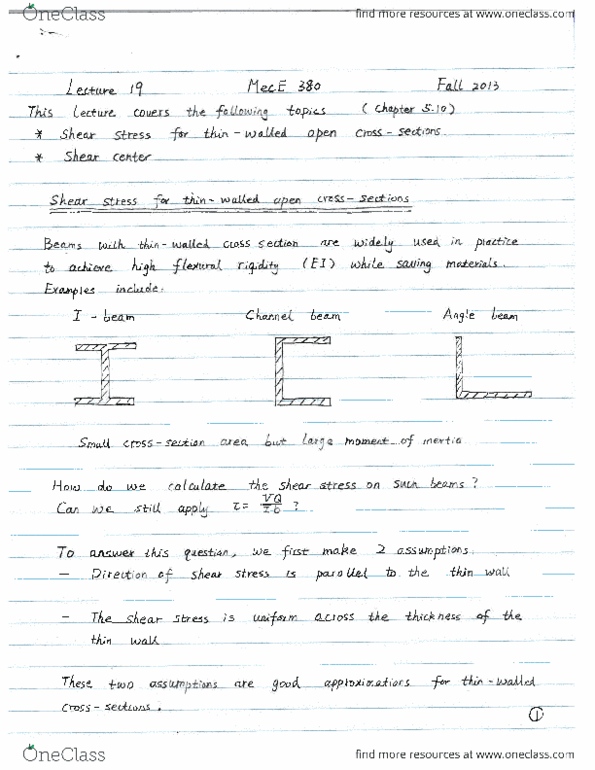 OneClass
find more resources at www.oneclass.com
Lecture 19 MecE 380 Fall 2013
This Lecture covers the following topics (Chapter 5.10)
* Shear stress for thin-walled open cross-sections.
* Shear center
Shear stress for thin-walled open cross-sections
Beams with thin-walled cross section are widely used in practice
to achieve high flexural rigidity (EI) while saving materials.
Examples include:
I - beam Channel beam Angle beam
Small cross-section area but large moment of inertia
How do we calculate the shear stress on such beams?
Can we still apply τ = VQ/Ib ?
To answer this question, we first make 2 assumptions.
- Direction of shear stress is parallel to the thin wall
- The shear stress is uniform across the thickness of the
thin wall
These two assumptions are good approximations for thin-walled
cross-sections.
1
OneClass
find more resources at www.oneclass.com